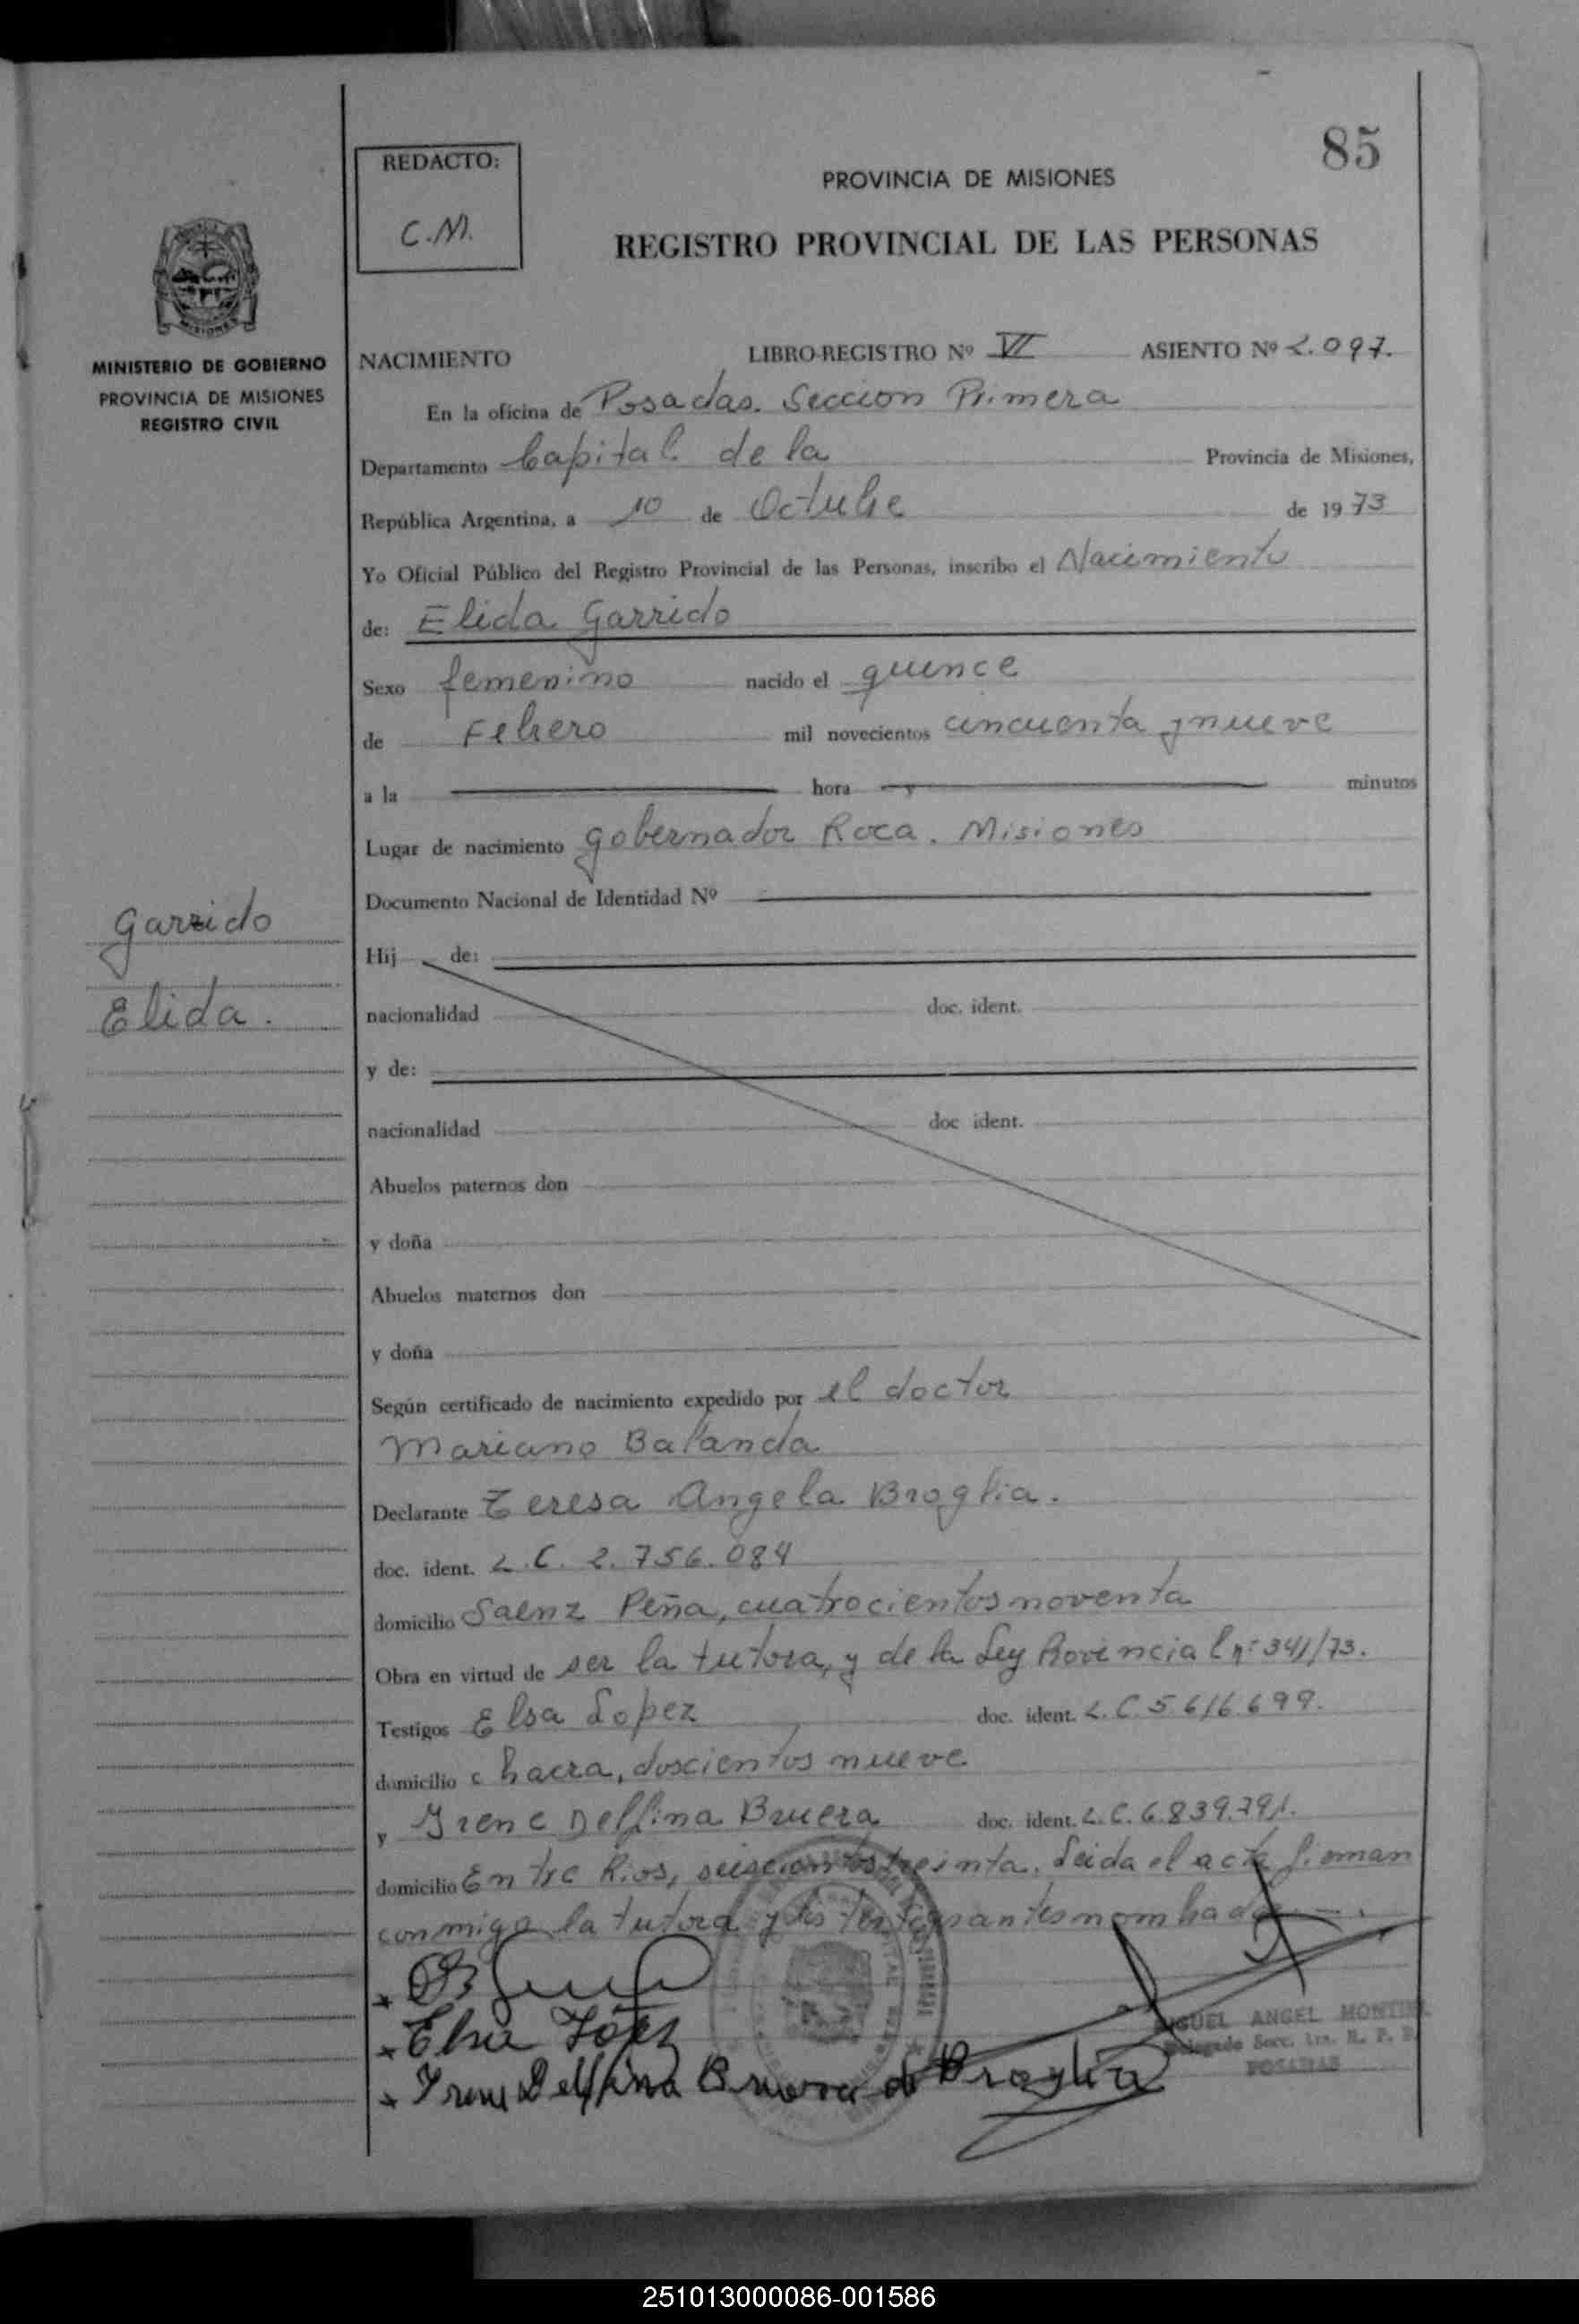 85
REDACTO:
C.M.
PROVINCIA DE MISIONES
REGISTRO PROVINCIAL DE LAS PERSONAS
MISIONES
MINISTERIO DE GOBIERNO
PROVINCIA DE MISIONES
REGISTRO CIVIL
NACIMIENTO LIBRO-REGISTRO Nº VI ASIENTO Nº 2.097.
En la oficina de Posadas. Seccion Primera
Departamento Capital. de la Provincia de Misiones,
República Argentina, a 10 de Octubre de 1973
Yo Oficial Público del Registro Provincial de las Personas, inscribo el Nacimiento
de: Elida Garrido
Sexo femenino nacido el quince
de Febrero mil novecientos cincuenta y nueve
a la hora y minutos
Lugar de nacimiento gobernador Roca. Misiones
Documento Nacional de Identidad Nº
Garrido
Elida.
Hij de:
nacionalidad doc. ident.
y de:
nacionalidad doc ident.
Abuelos paternos don
y doña
Abuelos maternos don
y doña
Según certificado de nacimiento expedido por el doctor
Mariano Balanda
Declarante Teresa Angela Broglia.
doc. ident. L.C. 2.756.084
domicilio Saenz Peña, cuatrocientos noventa
Obra en virtud de ser la tutora, y de la Ley Provincial nº 341/73.
Testigos Elsa Lopez doc. ident. L.C. 5.616.699.
domicilio chacra, doscientos nueve
y Irene Delfina Bruera doc. ident. L.C. 6.839.791.
domicilio Entre Rios, seiscientos treinta. Leida el acta firman
conmigo la tutora y los testigos antes nombrados
Elsa López
Irene Delfina Bruera de Broglia
MIGUEL ANGEL MONTIEL
Delegado Secc. 1ra. R. P. P.
POSADAS
251013000086-001586